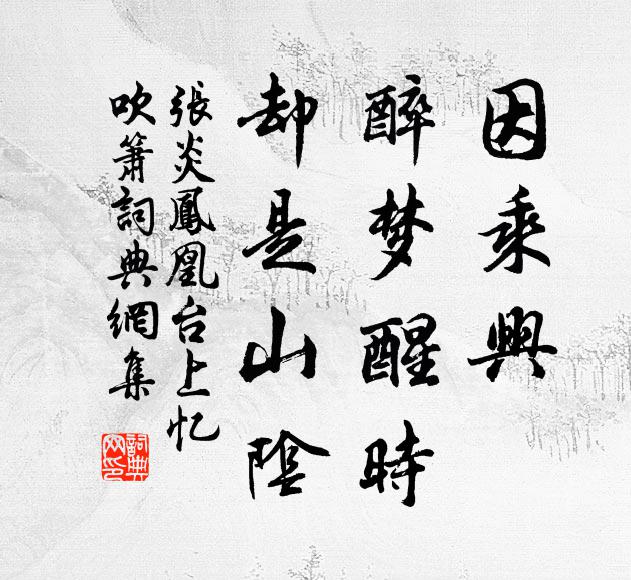 因乘興
醉梦醒時
却是山陰
張炎鳳凰台上忆
吹簫詞典網集
詞典
网印